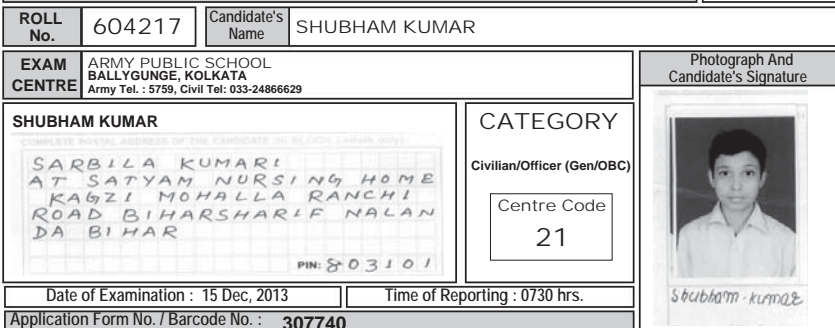 ROLL No. 604217 Candidate's Name SHUBHAM KUMAR
EXAM CENTRE
ARMY PUBLIC SCHOOL
BALLYGUNGE, KOLKATA
Army Tel. : 5759, Civil Tel: 033-24866629
Photograph And
Candidate's Signature
SHUBHAM KUMAR
COMPLETE POSTAL ADDRESS OF THE CANDIDATE (in BLOCK Letters only)
SARBILA KUMARI
AT SATYAM NURSING HOME
KAGZI MOHALLA RANCHI
ROAD BIHARSHARIF NALAN
DA BIHAR
PIN: 803101
CATEGORY
Civilian/Officer (Gen/OBC)
Centre Code
21
Shubham-kumar
Date of Examination : 15 Dec, 2013
Time of Reporting : 0730 hrs.
Application Form No. / Barcode No. : 307740